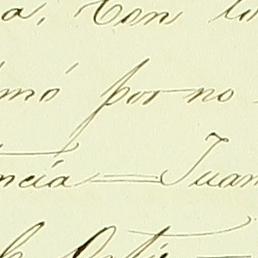 a, Con lo
mó por no
ncia — Juan